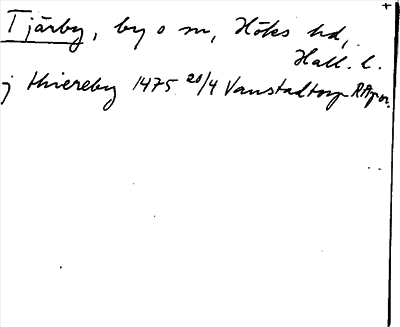 Tjärby, by o sn, Höks hd,
Hall. l.
j thiereby 1475 20/4 Vanstadtorp RAp or.